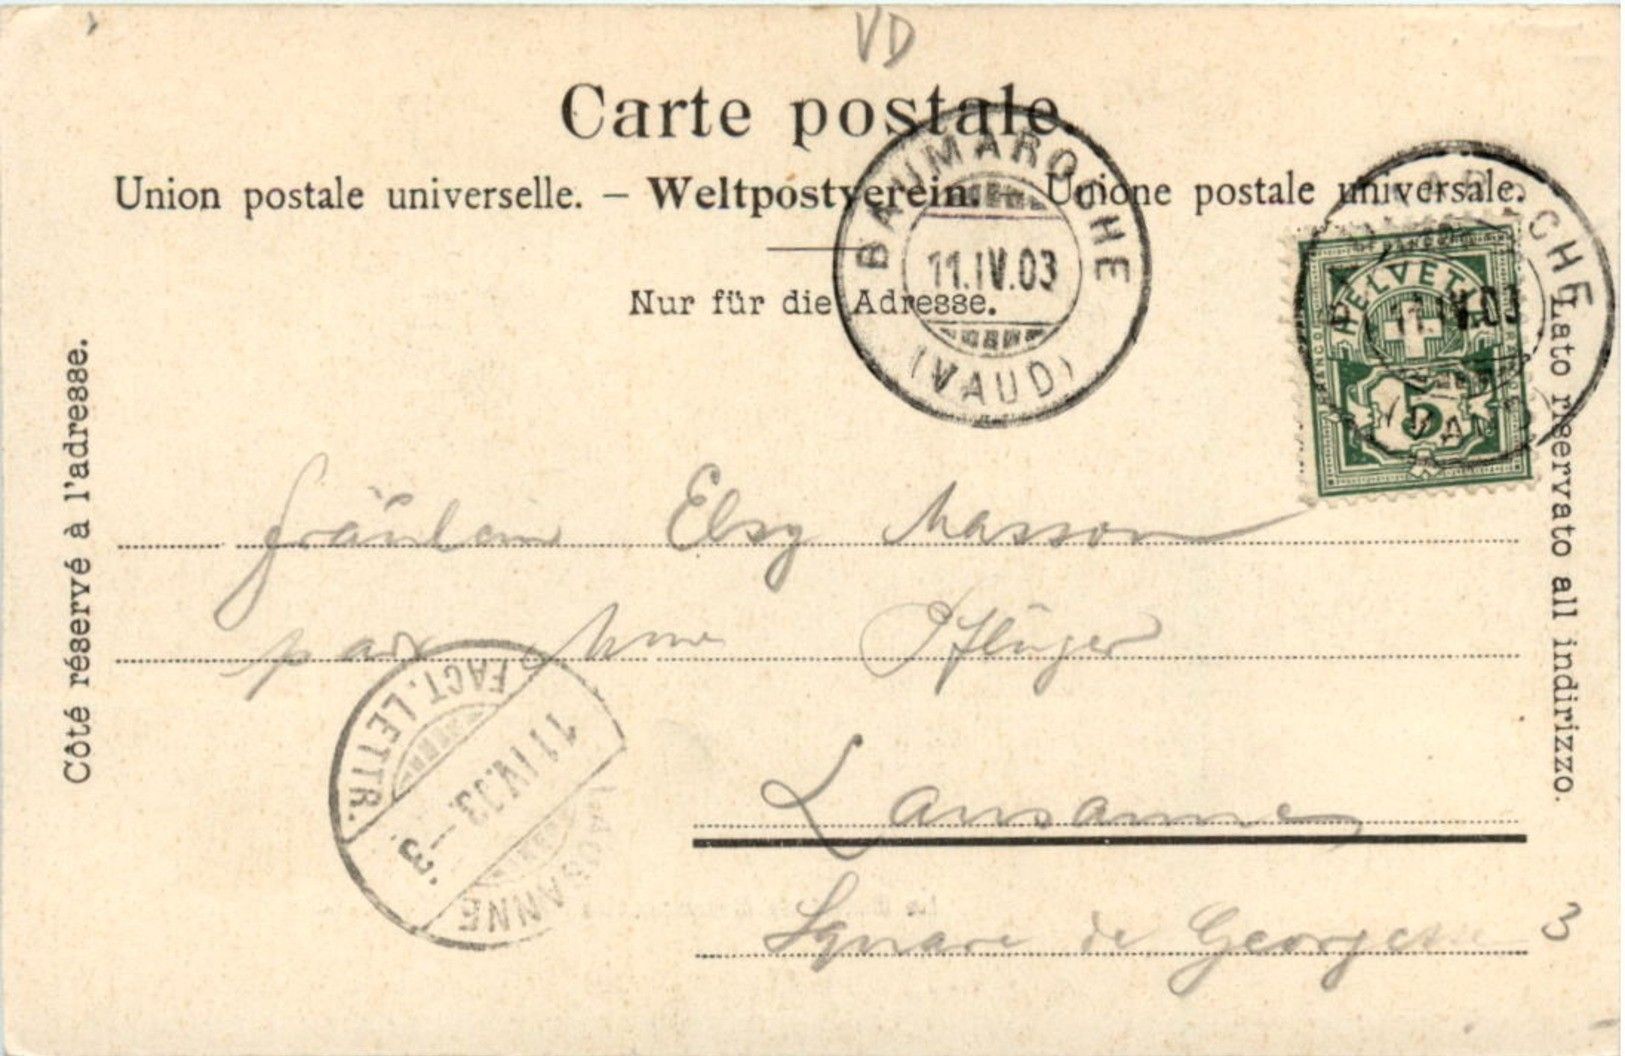 VD
Carte postale.
Union postale universelle. – Weltpostverein. – Unione postale universale.
Nur für die Adresse.
BAUMAROCHE
11.IV.03
(VAUD)
HELVETIA
FRANCO
5
11.IV.03
Côté réservé à l'adresse.
Lato riservato all indirizzo.
Fräulein Elsy Masson
par Mme Pflüger
FACT. LETTR.
11.IV.03.–3.
LAUSANNE
Lausanne
Square de Georgette
3